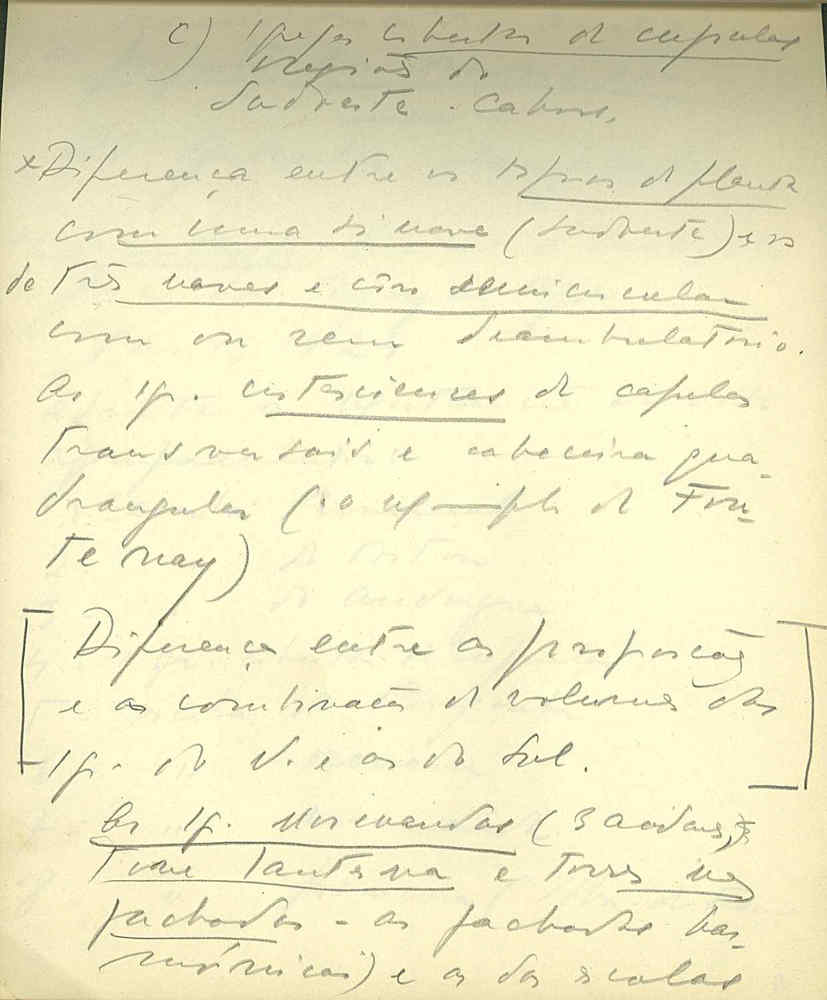 c) Igrejas cobertas de cupulas
região do
Sudoeste . Cahors.
x Diferença entre os tipos de planta
com uma só nave (Sudoeste) e os
de três naves e côro semicircular
com ou sem deambulatorio.
As Ig. cistercienses de capelas
transversais e cabeceira qua-
drangular (. o exemplo de Fon-
tenay)
[Diferença entre as proporções
e as combinações de volumes das
Ig. do N. e as do Sul.]
As Ig. Normandas (3 andares,
Torre lanterna e Torres nas
fachadas - as fachadas har-
mónicas) e as das escolas